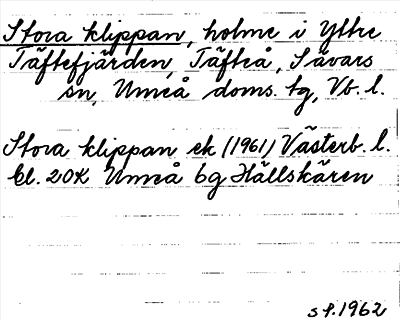 Stora klippan, holme i Yttre
Täftefjärden, Täfteå, Sävars
sn, Umeå doms. tg, Vb. l.
Stora klippan ek (1961) Västerb. l.
bl. 20K Umeå 6g Hällskären
sf. 1962